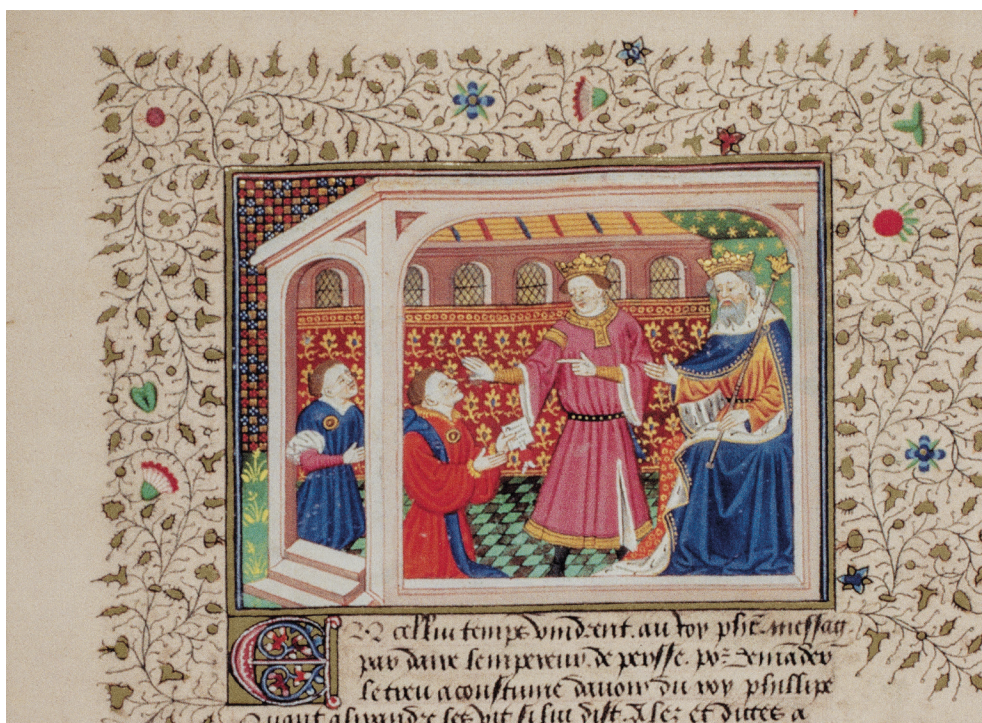 En celluy temps vindrent au roy phē messag
par daire lempereur de persse. poᷣ demader
le treu acoustume dauoir du roy phillipe
Quant alixandre les vit si lui dist. Alez et dictes a